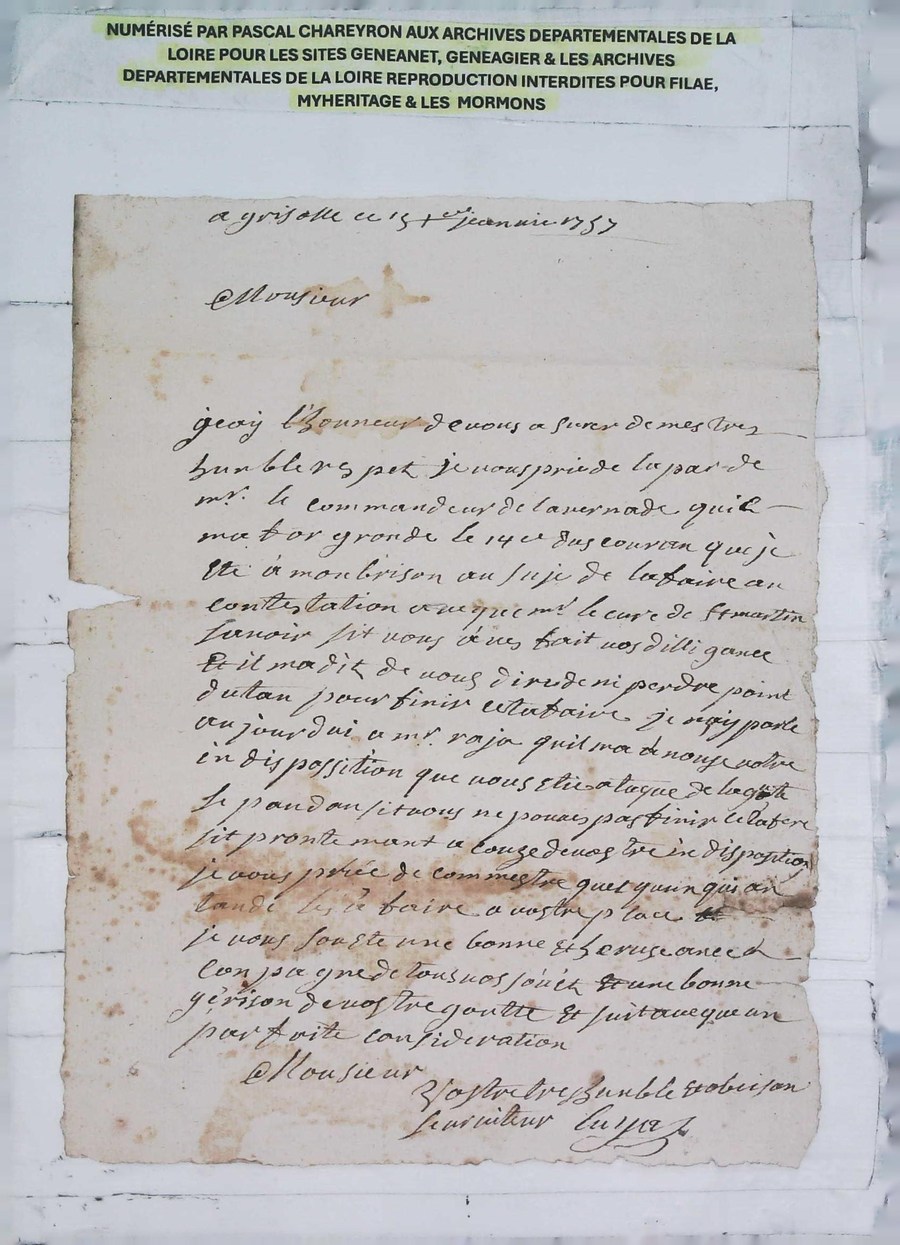 NUMÉRISÉ PAR PASCAL CHAREYRON AUX ARCHIVES DEPARTEMENTALES DE LA
LOIRE POUR LES SITES GENEANET, GENEAGIER & LES ARCHIVES
DEPARTEMENTALES DE LA LOIRE REPRODUCTION INTERDITES POUR FILAE,
MYHERITAGE & LES MORMONS
a grisolle ce 15 jeanvie 1757
Monsieur
jeay l'honneur de vous a surer de mes tres
humble respet je vous prie de la par de
mr. le commandeur de lavernade quil
ma for gronde le 14e dus couran que je
ete à monbrison au suje de lafaire an
contestation aveque mr le cure de St martin
savoir sit vous avés fait vos dilligance
Et il ma dit de vous dire de ni perdre point
dutan pour finir cetafaire je nay parle
aujourdui a mr. raja quil ma anonse votre
in disposition que vous etie ataque de la gute
se pandan sit vous ne pouves pas finir cetafere
sit prontemant a couze de vostre in disposition
je vous priée de commestre quequun qui an
tande les a faire a vostre place
je vous souete une bonne et heruse anee
conpagne de tous vos souét et une bonne
gérison de vostre goutte et suit aveque un
parfaite consideration
Monsieur
Vostre tres humble et obeisan
serviteur